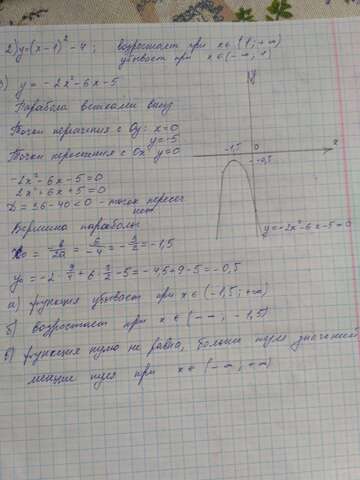 2) y=(x-1)²-4; возрастает при x∈(1;+∞)
убывает при x∈(-∞;1)
y = -2x²-6x-5
Парабола ветками вниз
Точки перечения с Oy: x=0
y=-5
Точки пересечения с Ox y=0
-2x²-6x-5=0
2x²+6x+5=0
D=36-40<0 - точек пересеч
нет
Вершина параболы
x₀ = -b/2a = 6/-4 = -3/2 = -1,5
y₀ = -2·9/4+6·3/2-5=-4,5+9-5=-0,5
а) функция убывает при x∈(-1,5;+∞)
б) возрастает при x∈(-∞;-1,5)
в) функция нулю не равна, больше нуля значений
меньше нуля при x∈(-∞;+∞)
y
x
-1,5
0
-0,5
y=-2x²-6x-5=0